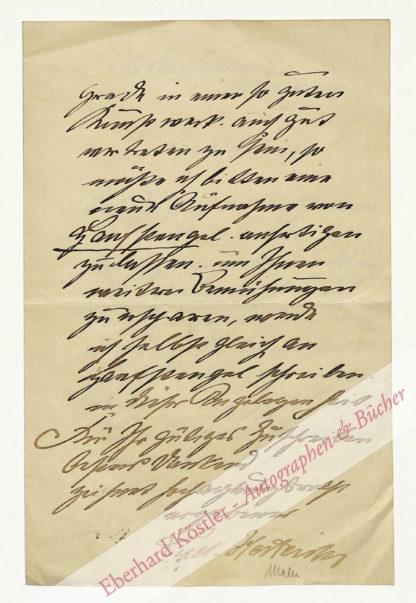 grade in einer so guten
Kunstwerk. auch gut
vertreten zu sein, so
möchte ich bitten eine
neue Aufnahme von
Hanfstaengel. anfertigen
zu lassen. um Ihnen
weitere Bemühungen
zu ersparen, werde
ich selbst gleich an
Hanfstaengel schreiben
in dieser Angelegenheit
Für Ihr gütiges Zuschreiben
besten Dank
hochachtungsvoll
Herterich
Maler
Eberhard Köstler - Autographen & Bücher